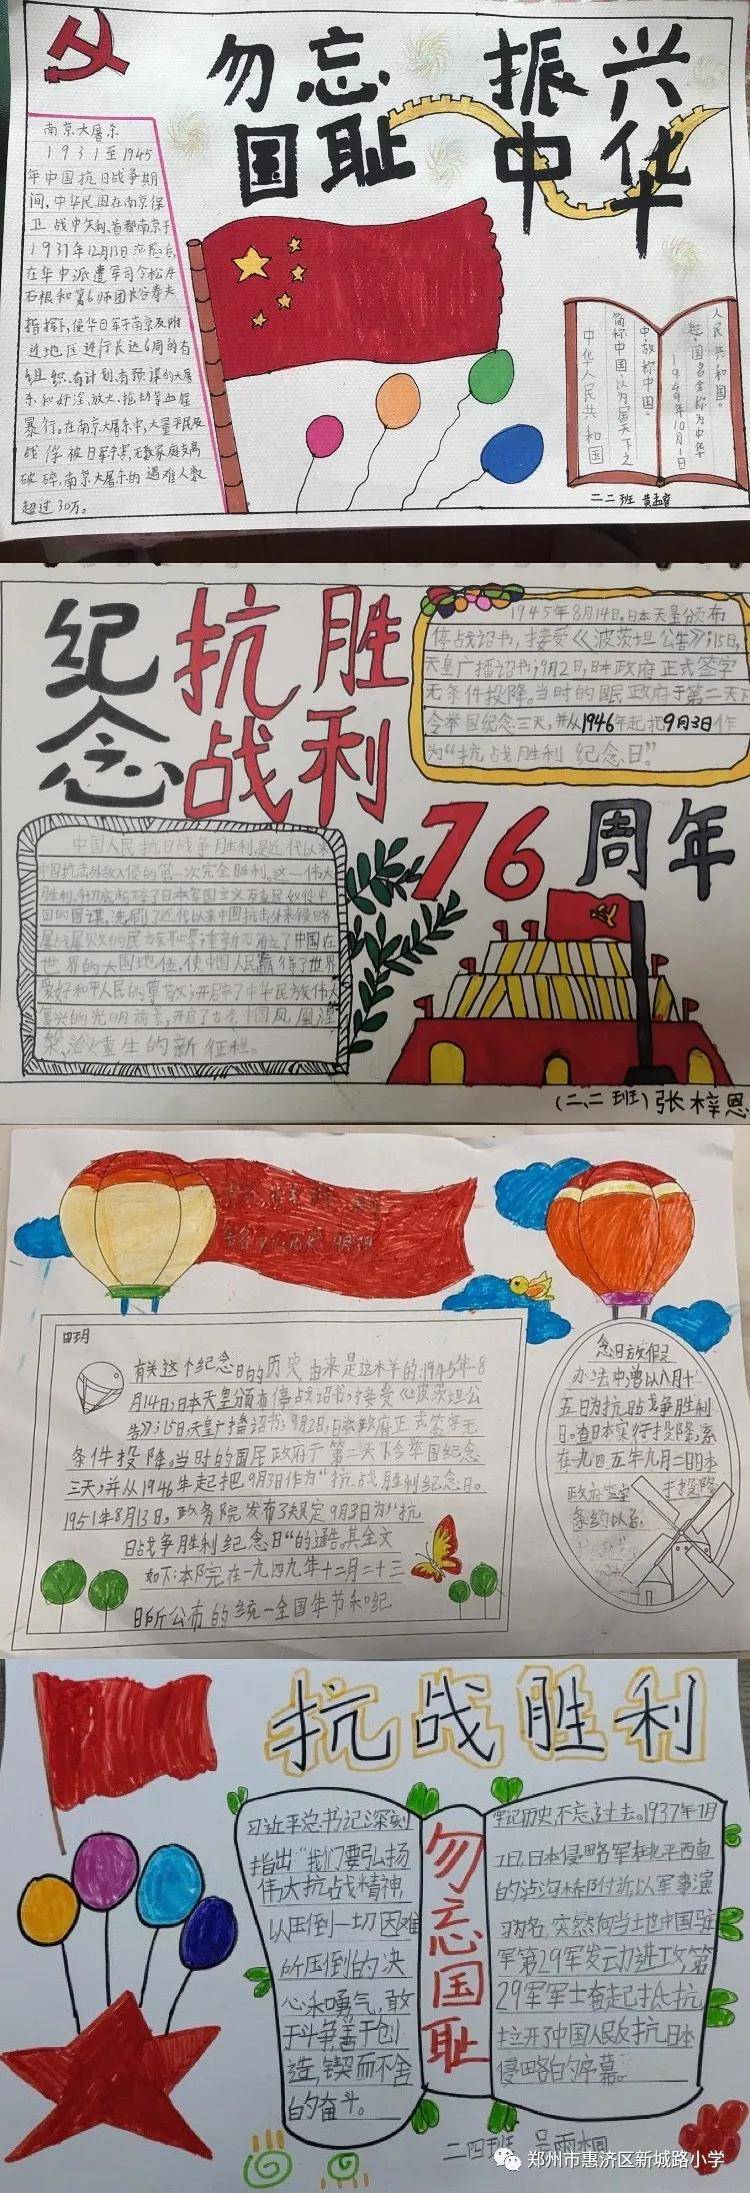 勿忘 振兴
国耻 中华
南京大屠杀
1931至1945
年中国抗日战争期
间,中华民国在南京保
卫战中失利、首都南京于
1937年12月13日沦陷后,
在华中派遣军司令松井
石根和第6师团长谷寿夫
指挥下,侵华日军于南京及附
近地区进行长达6周的有
组织、有计划、有预谋的大屠
杀和奸淫、放火、抢劫等血腥
暴行。在南京大屠杀中,大量平民及
战俘被日军杀害,无数家庭支离
破碎,南京大屠杀的遇难人数
超过30万。
中华人民共和国
简称中国,以为居天下之
中,故称中国。
1949年10月1日
起,国名全称为中华
人民共和国。
二二班 黄孟睿
纪念抗战胜利
76周年
1945年8月14日,日本天皇颁布
停战诏书,接受《波茨坦公告》;15日,
天皇广播诏书;9月2日,日本政府正式签字
无条件投降。当时的国民政府于第二天下
令举国纪念三天,并从1946年起把9月3日作
为“抗战胜利纪念日”。
中国人民抗日战争胜利,是近代以来
中国抗击外敌入侵的第一次完全胜利。这一伟大
胜利,彻底粉碎了日本军国主义
国的图谋,洗刷了近代以来中国抗击外来侵略
屡战屡败的民族耻辱;重新确立了中国在
世界的大国地位,使中国人民赢得了世界
爱好和平人民的尊敬;开辟了中华民族伟大
复兴的光明前景,开启了古老中国凤凰涅
槃、浴火重生的新征程。
(二、二班)张梓恩
9月3日
田玥
有关这个纪念日的历史由来是这样的:1945年8
月14日,日本天皇颁布停战诏书,接受《波茨坦公
告》;15日,天皇广播诏书;9月2日,日本政府正式签字无
条件投降。当时的国民政府于第二天下令举国纪念
三天,并从1946年起把9月3日作为“抗战胜利纪念日。
1951年8月13日,政务院发布了规定9月3日为“抗
日战争胜利纪念日“的通告。其全文
如下:本院在一九四九年十二月二十三
日所公布的统一全国年节和纪
念日放假
办法中,曾以八月十
五日为抗日战争胜利
日。查日本实行投降,系
在一九四五年九月二日日本
政府签字
条约以后。
抗战胜利
习近平总书记深刻
指出:“我们要弘扬
伟大抗战精神,
以压倒一切困难
所压倒的决
心和勇气,敢
于斗争,善于创
造,锲而不舍
的奋斗。
勿忘国耻
牢记历史,不忘过去。1937年7月
7日,日本侵略军在北平西南
的卢沟桥附近以军事演
习为名,突然向当地中国驻
军第29军发动进攻,第
29军军士奋起抵抗,
拉开了中国人民反抗日本
侵略的序幕。
二四班 吴雨桐
郑州市惠济区新城路小学